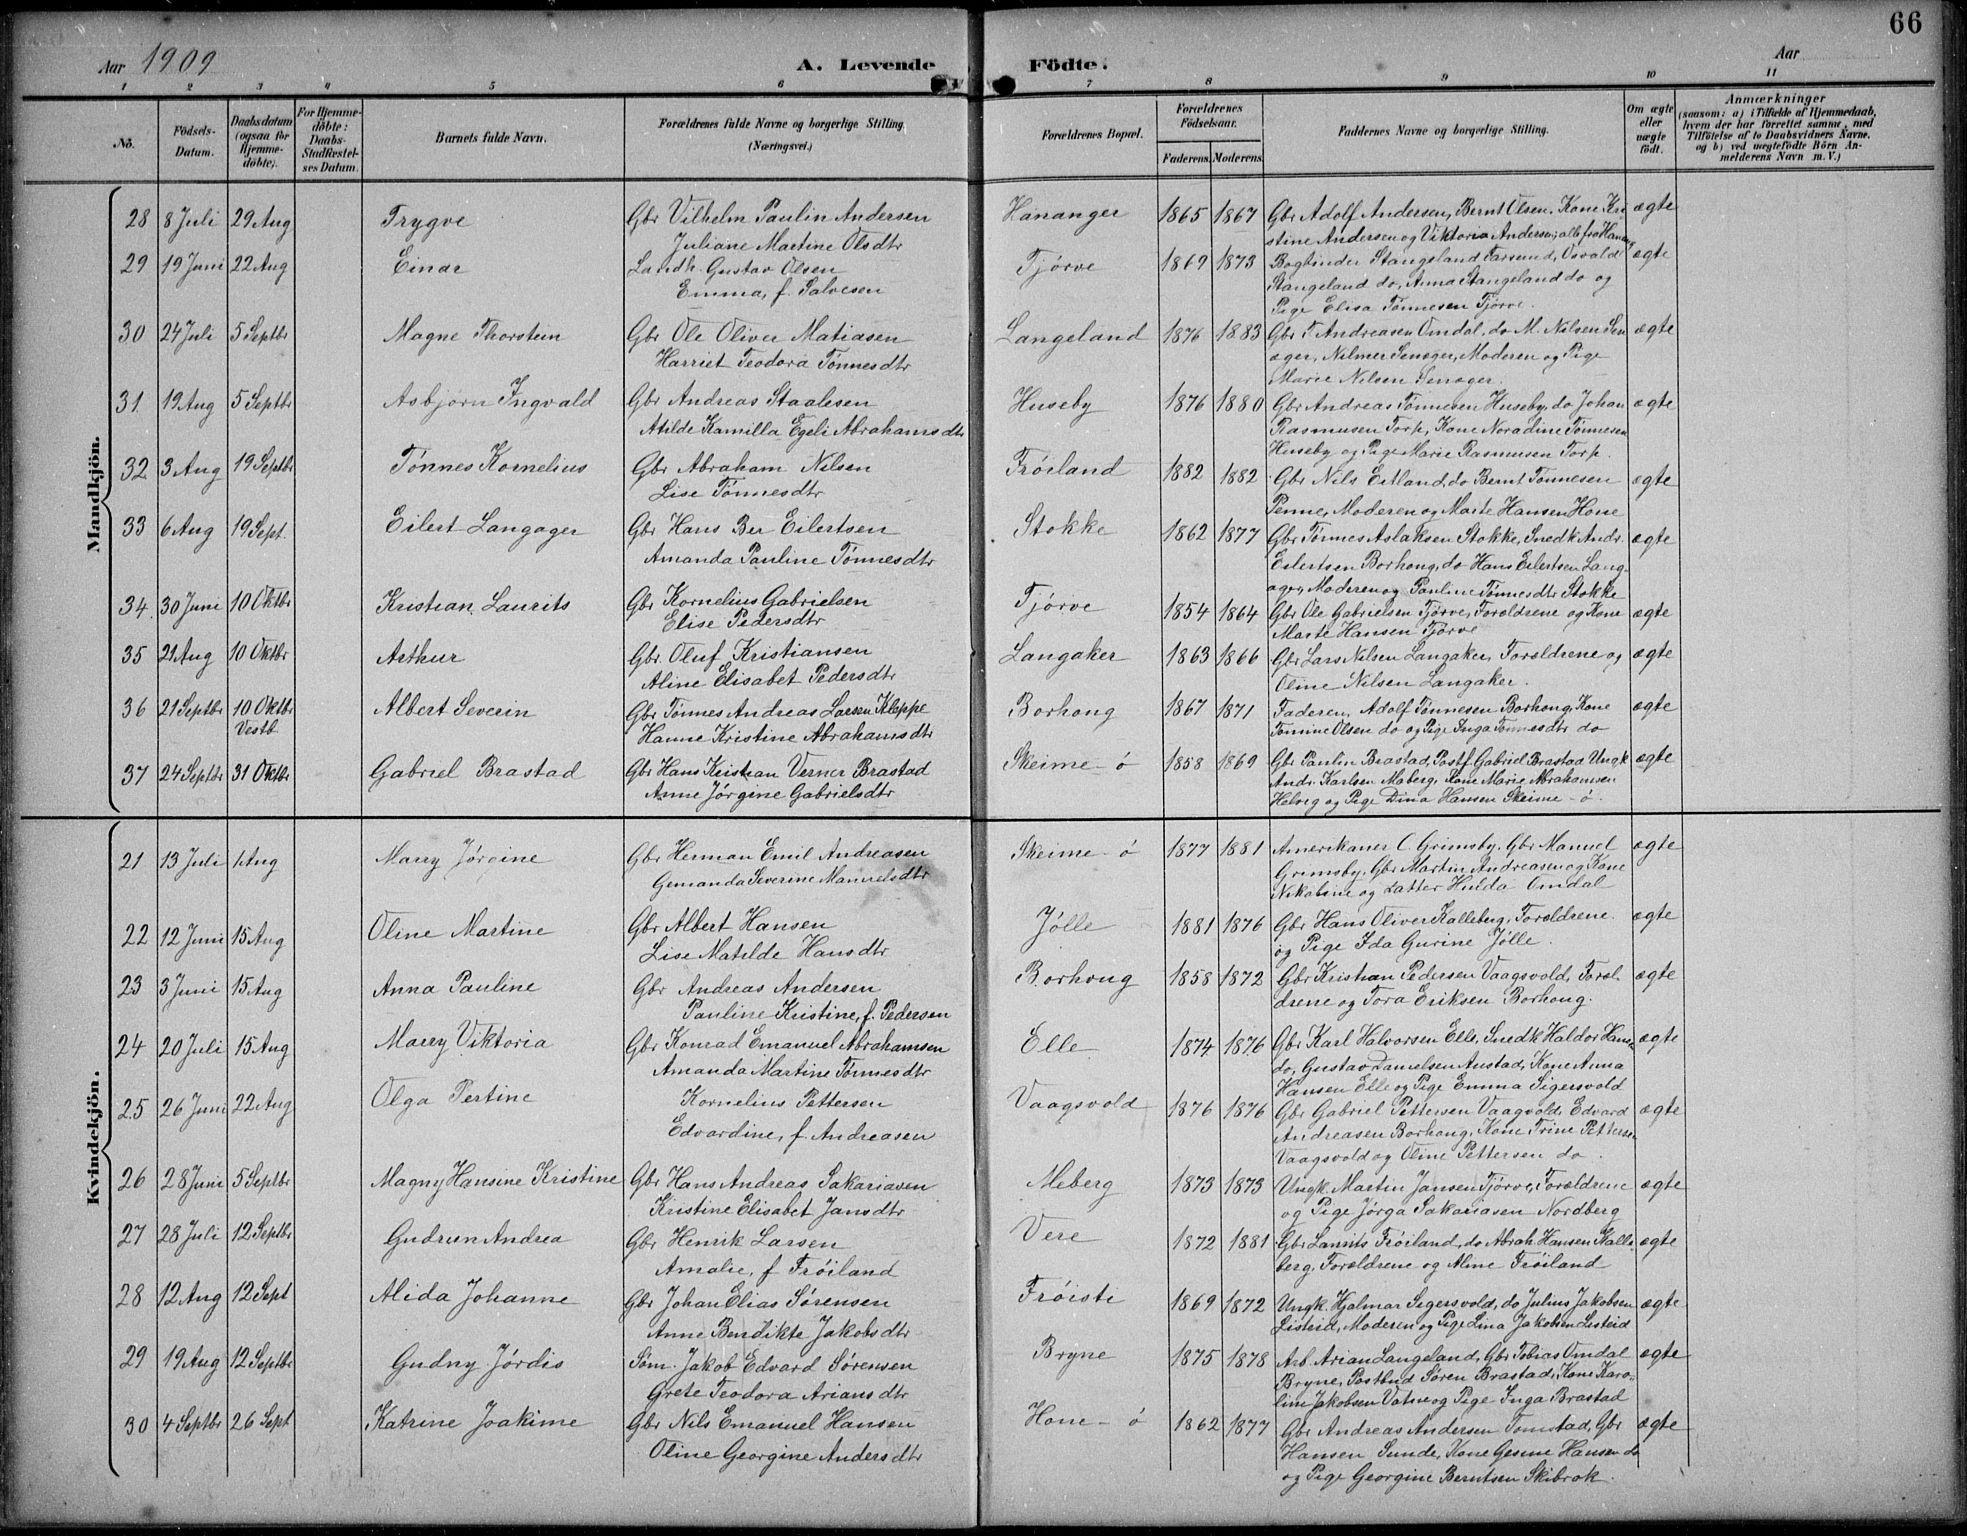 66
Aar 1909
A. Levende Födte.
Aar
1 2 3 4 5 6 7 8 9 10 11
No.
Födsels-Datum.
Daabsdatum (ogsaa for Hjemme-döbte).
For Hjemme-döbte: Daabs-Stadfæstel-ses Datum.
Barnets fulde Navn.
Forældrenes fulde Navne og borgerlige Stilling. (Næringsvei.)
Forældrenes Bopæl.
Forældrenes Födselsaar.
Faderens. Moderens.
Faddernes Navne og borgerlige Stilling.
Om ægte eller uægte födt.
Anmærkninger
(saasom: a) i Tilfælde af Hjemmedaab,
hvem der har forrettet samme, med
Tilföielse af to Daabsvidners Navne,
og b) ved uægtefödte Börn An-
melderens Navn m. V.)
Mandkjön.
28 8 Juli 29 Aug Trygve Gbr Vilhelm Paulin Andersen Hananger 1865 1867 Gbr Adolf Andersen, Bernt Olsen, Kone Kri ægte
Juliane Martine Olsdtr stine Andersen og Viktoria Andersen, alle fra Hanang
29 19 Juni 22 Aug Einar Landh. Gustav Olsen Tjørve 1869 1873 Bogbinder Stangeland Farsund, Osvald ægte
Emma, f. Salvesen Stangeland do, Anna Stangeland do og
Pige Elisa Tønnesen Tjørve.
30 24 Juli 5 Septbr Magne Thorstein Gbr Ole Oliver Matiasen Langeland 1876 1883 Gbr T. Andreasen Omdal, do M. Nilsen Sen ægte
Harriet Teodora Tønnesdtr æger, Nilmer Senæger, Moderen og Pige
Marie Nilsen Senæger.
31. 19 Aug 5 Septbr Asbjørn Ingvald Gbr Andreas Staalesen Huseby 1876 1880 Gbr Andreas Tønnesen Huseby, do Johan ægte
Atilde Kamilla Egeli Abrahamsdtr Rasmussen Torp, Kone Noradine Tønnesen
Huseby og Pige Marie Rasmussen Torp.
32 3 Aug 19 Septbr Tønnes Kornelius Gbr Abraham Nilsen Frøiland 1882 1882 Gbr Nils Eitland, do Bernt Tønnesen ægte
Lise Tønnesdtr Penne, Moderen og Marte Hansen Hone
33 6 Aug 19 Sept. Eilert Langager Gbr Hans Ber Eilertsen Stokke 1862 1877 Gbr Tønnes Aslaksen Stokke, Snedk Andr. ægte
Amanda Pauline Tønnesdtr Eilertsen Borhong, do Hans Eilertsen Lang-
ager, Moderen og Pauline Tønnesdtr Stokke
34. 30 Juni 10 Oktbr Kristian Laurits Gbr Kornelius Gabrielsen Tjørve 1854 1864 Gbr Ole Gabrielsen Tjørve, Forældrene og Kone ægte
Elise Pedersdtr Marte Hansen Tjørve
35 21 Aug 10 Oktbr Arthur Gbr. Oluf Kristiansen Langaker 1863 1866 Gbr Lars Nilsen Langaker, Forældrene og ægte
Aline Elisabet Pedersdtr Oline Nilsen Langaker.
36 21 Septbr 10 Oktbr Albert Severin Gbr Tønnes Andreas Larsen Kleppe Borhong 1867 1871 Faderen, Adolf Tønnesen Borhong, Kone ægte
Vestb. Hanne Kristine Abrahamsdtr Tomine Olsen do og Pige Inga Tønnesdtr do
37 24 Septbr 31 Oktbr Gabriel Brastad Gbr Hans Kristian Verner Brastad Skeime-ø 1858 1869 Gbr Paulin Brastad, Postf. Gabriel Brastad Ungk ægte
Anne Jørgine Gabrielsdtr Andr. Karlsen Maberg, Kone Marie Abrahamsen
Helvig og Pige Dina Hansen Skeime-ø.
Kvindekjön.
21 13 Juli 1 Aug Marry Jørgine Gbr Herman Emil Andreasen Skeime-ø 1877 1881 Amerikaner C. Grimsby, Gbr Manuel ægte
Gemanda Severine Manuelsdtr Grimsby, Gbr Martin Andreasen og Kone
Nikoline og Datter Hulda Omdal
22 12 Juni 15 Aug Oline Martine Gbr Albert Hansen Jølle 1881 1876 Gbr Hans Oliver Kalleberg, Forældrene. ægte
Lise Matilde Hansdtr og Pige Ida Gurine Jølle.
23 3 Juni 15 Aug Anna Pauline Gbr Andreas Andersen Borhong 1858 1872 Gbr Kristian Pedersen Vaagsvold, Foræl- ægte
Pauline Kristine, f. Pedersen drene og Tora Eriksen Borhong.
24 20 Juli 15 Aug Marry Viktoria Gbr Konrad Emanuel Abrahamsen Elle 1874 1876 Gbr Karl Halvorsen Elle, Snedk Haldor Hansen ægte
Amanda Martine Tønnesdtr do, Gustav Danielsen Austad, Kone Anna
Hansen Elle og Pige Emma Sigersvold
25 26 Juni 22 Aug Olga Pertine Kornelius Pettersen Vaagsvold 1876 1876 Gbr Gabriel Pettersen Vaagsvold, Edvard ægte
Edvardine, f. Andreasen Andreasen Borhong, Kone Trine Pettersen
Vaagsvold og Oline Pettersen do.
26 28 Juni 5 Septbr Magny Hansine Kristine Gbr Hans Andreas Sakariasen Meberg 1873 1873 Ungk. Martin Jansen Tjørve, Forældrene ægte
Kristine Elisabet Jansdtr og Pige Jørga Sakariasen Nordberg
27 28 Juli 12 Septbr Gudrun Andrea Gbr Henrik Larsen Vere 1872 1881 Gbr Laurits Frøiland, do Abrah Hansen Kalle- ægte
Amalie, f Frøiland berg, Forældrene og Aline Frøiland
28 12 Aug 12 Sept Alida Johanne Gbr Johan Elias Sørensen Frøisti 1869 1872 Ungk. Hjalmar Sigersvold, do Julius Jakobsen ægte
Anne Bendikte Jakobsdtr Listeid, Moderen og Pige Lina Jakobsen Listeid
29 19 Aug 12 Septbr Gudny Jørdis Søm. Jakob Edvard Sørensen Bryne 1875 1878 Arb. Arian Langeland, Gbr Tobias Omdal ægte
Grete Teodora Ariansdtr Bryne, Postbud Søren Brastad, Kone Karo-
line Jakobsen Vatne og Pige Inga Brastad
30 4 Septbr 26 Sept Katrine Joakime Gbr Nils Emanuel Hansen Hone-ø 1862 1877 Gbr Andreas Andersen Tomstad, Gbr ægte
Oline Georgine Andersdtr Hansen Sunde, Kone Gesine Hansen do
og Pige Georgine Berntsen Skibrok.